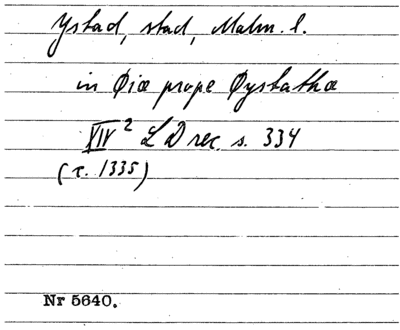 Ystad, stad, Malm. l.
in Øiæ prope Øystathæ
XIV² LD rec. s. 334
(c. 1335)
Nr 5640.